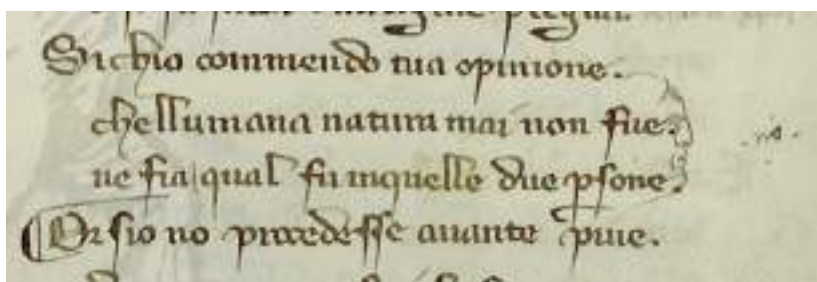 Sichio commendo tua opinione.
chellumana natura mai non fue.
ne fia qual fu inquelle due psone.
Or sio no procedesse auante piue.